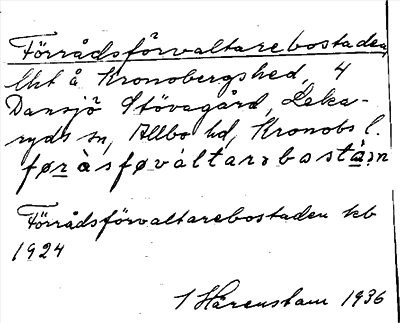 Förrådsförvaltarebostaden
lht å Kronobergshed, 4
Dansjö Stövagård, Leka-
ryds sn, Allbo hd, Kronobs l.
førràsføváltarəbostà:n
Förrådsförvaltarebostaden kb
1924
I Hårenstam 1936